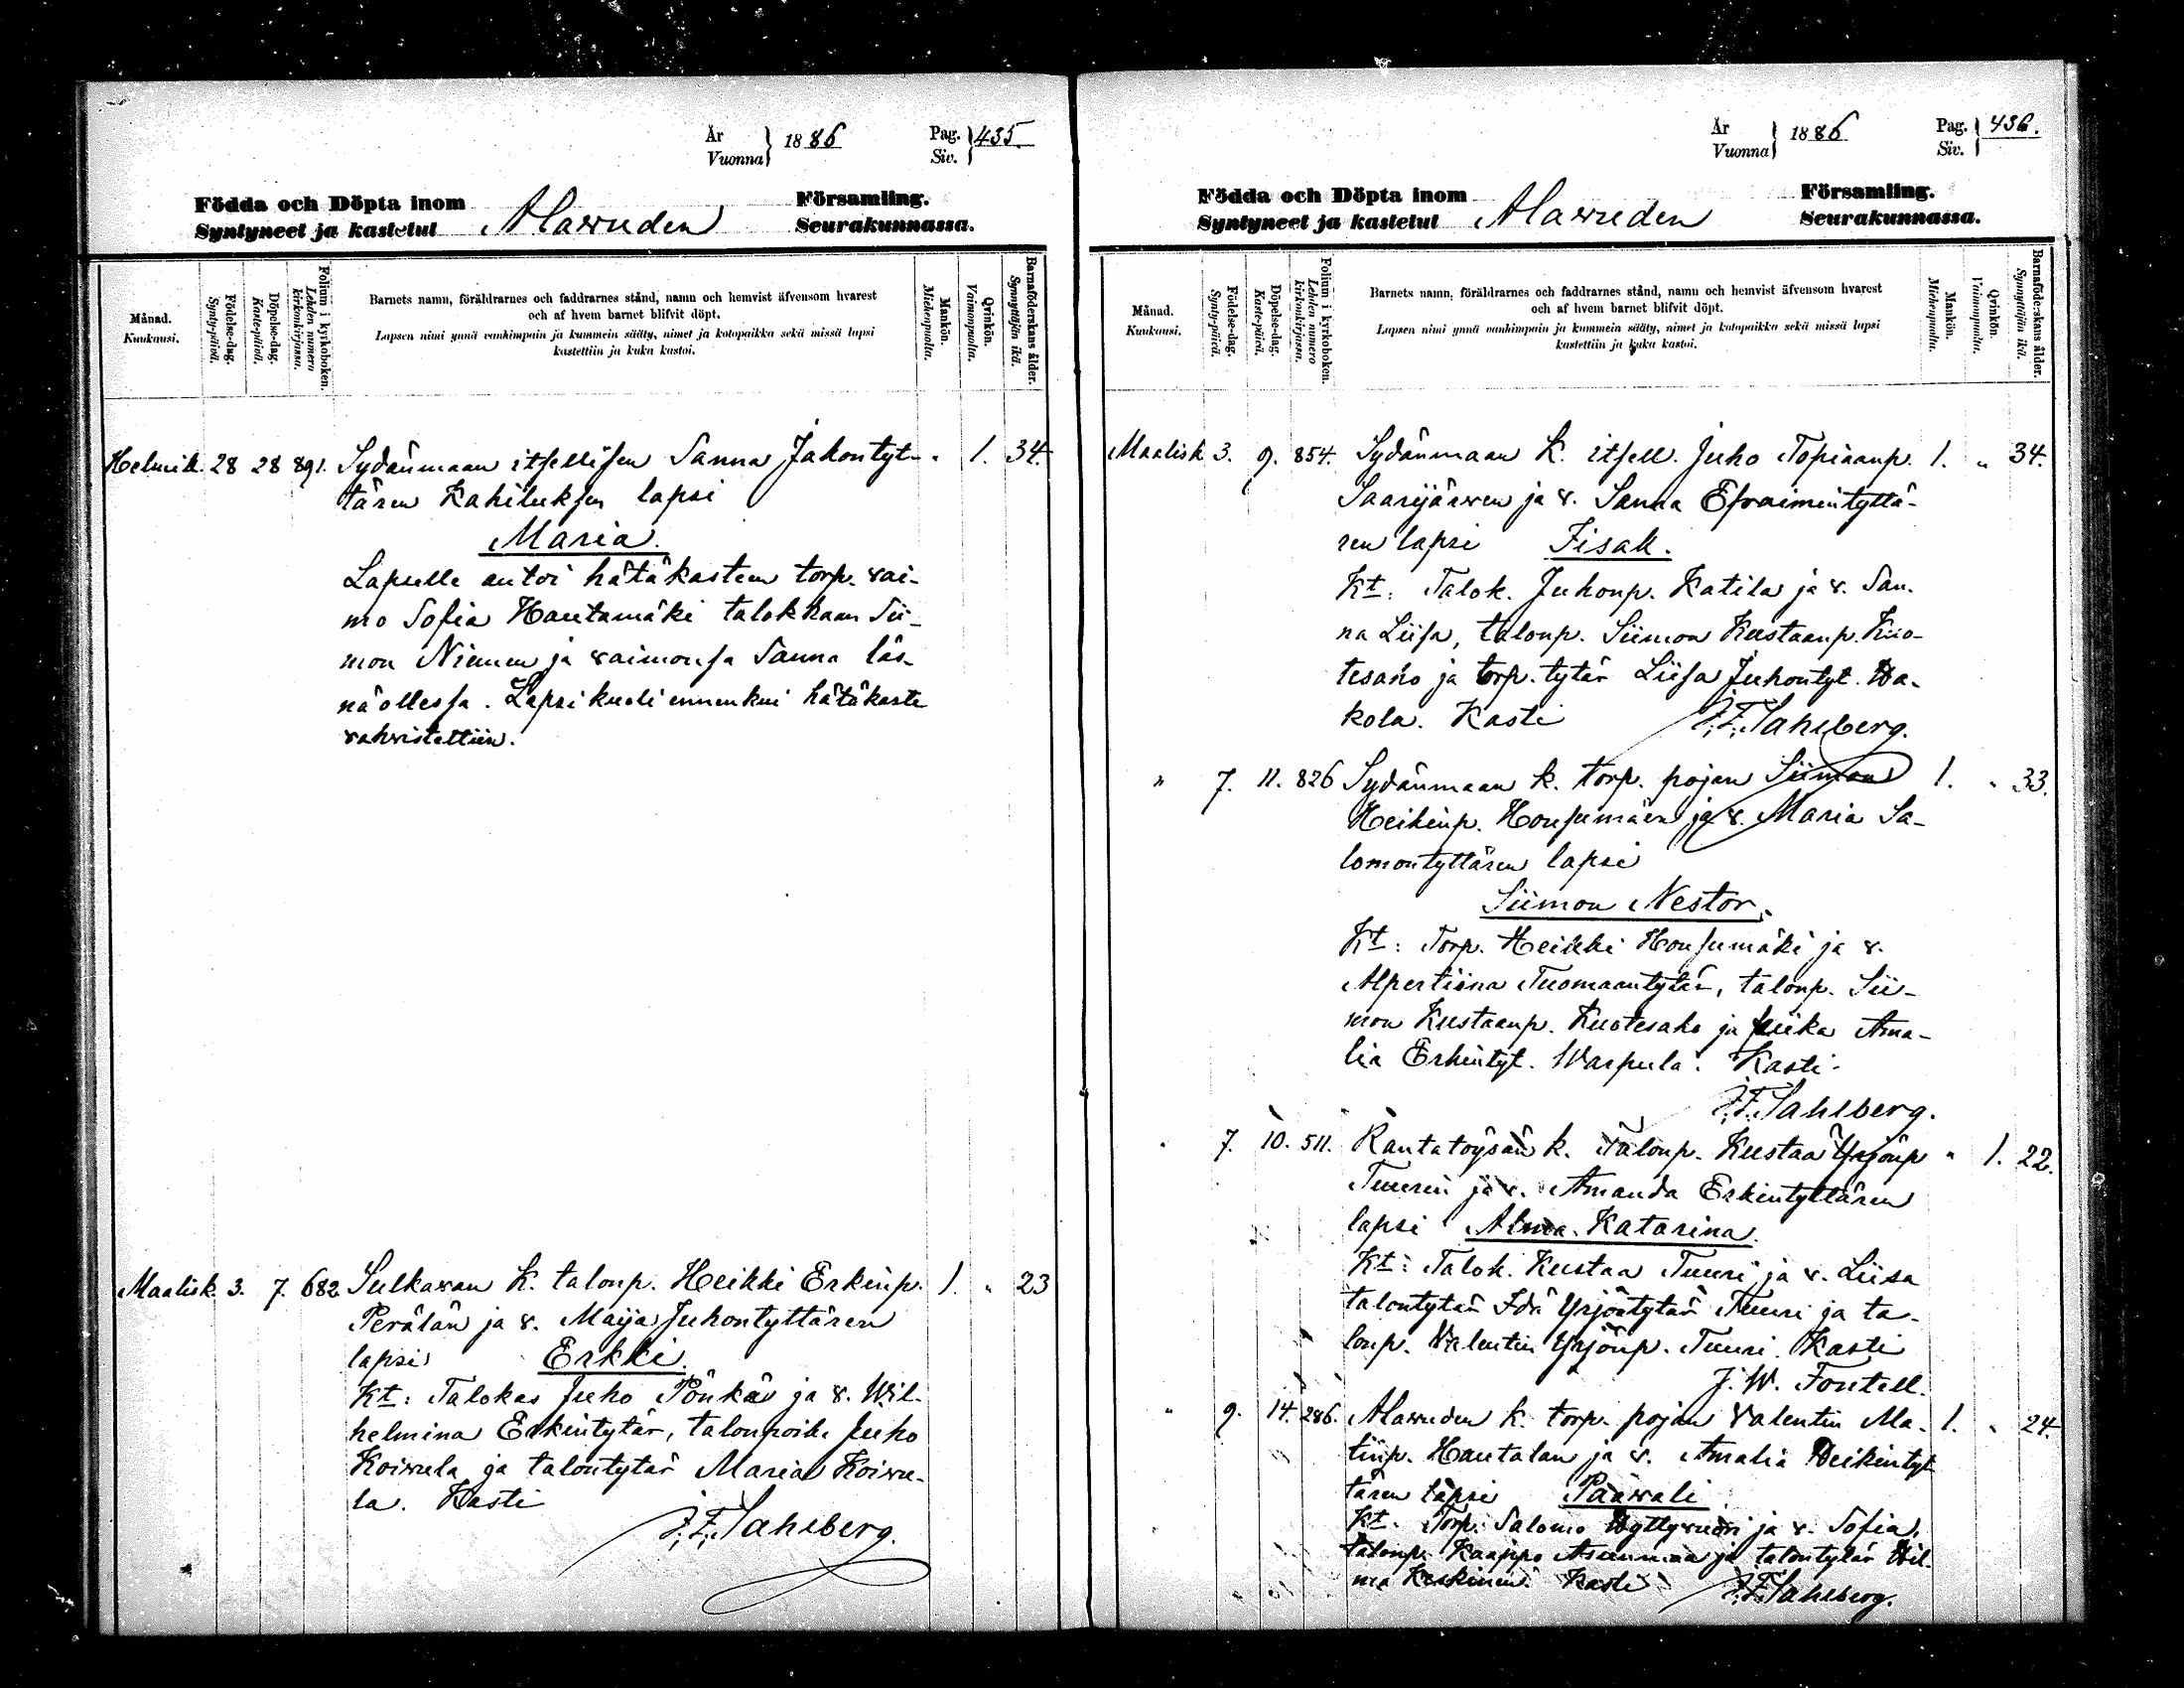 År
Vuonna } 1886 Pag.
Siv. } 435.
Födda och Döpta inom
Syntyneet ja kastetut Alawuden Församling.
Seurakunnassa.
Månad.
Kuukausi.
Födelse-dag.
Synty-päivä.
Döpelse-dag.
Kaste-päivä.
Folium i kyrkoboken.
Lehden numero
kirkonkirjassa.
Barnets namn, föräldrarnes och faddrarnes stånd, namn och hemvist äfvensom hvarest
och af hvem barnet blifvit döpt.
Lapsen nimi ynnä vanhimpain ja kummein sääty, nimet ja kotopaikka sekä missä lapsi
kastettiin ja kuka kastoi.
Mankön.
Miehenpuolta.
Qvinkön.
Vaimonpuolta.
Barnaföderskans ålder.
Synnyttäjän ikä.
Helmik. 28 28 891. Sydänmaan itsellisen Sanna Jakontyt- " 1. 34.
tären Kahiluksen lapsi
Maria.
Lapselle antoi hätäkasteen torp. vai-
mo Sofia Hautamäki talokkaan Sii-
mon Niemen ja vaimonsa Sanna läs-
näollessa. Lapsi kuoli ennenkui hätäkaste
vahvistettiin.
Maalisk. 3. 7. 682 Sulkavan K. talonp. Heikki Erkinp. 1. " 23
Perälän ja v. Maija Juhontyttären
lapsi Erkki.
Kt: Talokas Juho Pönkä ja v. Wil-
helmina Erkintytär, talonpoika Juho
Koivula ja talontytär Maria Koivu-
la. Kasti
J. F. Sahlberg.
År
Vuonna } 1886 Pag.
Siv. } 436.
Födda och Döpta inom
Syntyneet ja kastetut Alawuden Församling.
Seurakunnassa.
Månad.
Kuukausi.
Födelse-dag.
Synty-päivä.
Döpelse-dag.
Kaste-päivä.
Folium i kyrkoboken.
Lehden numero
kirkonkirjassa.
Barnets namn, föräldrarnes och faddrarnes stånd, namn och hemvist äfvensom hvarest
och af hvem barnet blifvit döpt.
Lapsen nimi ynnä vanhimpain ja kummein sääty, nimet ja kotopaikka sekä missä lapsi
kastettiin ja kuka kastoi.
Mankön.
Miehenpuolta.
Qvinkön.
Vaimonpuolta.
Barnaföderskans ålder.
Synnyttäjän ikä.
Maalisk 3. 9. 854. Sydänmaan K. itsell. Juho Topiaanp. 1. " 34.
Saarijärven ja v. Sanna Efraimintyttä-
ren lapsi Iisak.
Kt: Talok. Juhonp. Katila ja v. San-
na Liisa, talonp. Siimon Kustaanp. Kuo-
tesaho ja torp. tytär Liisa Juhontyt. Ha-
kola. Kasti J. F. Sahlberg.
" 7. 11. 826 Sydänmaan k. torp. pojan Siimon 1. " 33.
Heikinp. Honsumäen ja v. Maria Sa-
lomontyttären lapsi
Siimon Nestor.
Kt: Torp. Heikki Honsumäki ja v.
Alpertiina Tuomaantytär, talonp. Sii-
mon Kustaanp. Kuotesaho ja piika Ama-
lia Erkintyt. Warpula. Kasti
J. F. Sahlberg.
" 7. 10. 511. Rantatöysän k. Talonp. Kustaa Yrjönp " 1. 22.
Tuurin ja v. Amanda Erkintyttären
lapsi Alma Katarina.
Kt: Talok. Kustaa Tuuri ja v. Liisa
talontytär Ida Yrjöntytär Tuuri ja ta-
lonp. Valentin Yrjönp. Tuuri. Kasti
J. W. Fontell.
" 9. 14. 286. Alawuden k. torp. pojan Valentin Ma- 1. " 24.
tinp. Hautalan ja v. Amalia Heikintyt
tären lapsi Paavali.
Kt: Torp. Salomo ja v. Sofia,
talonp. Kaappo Asunmaa ja talontytär Hil-
ma Keskinen. Kasti J. F. Sahlberg.